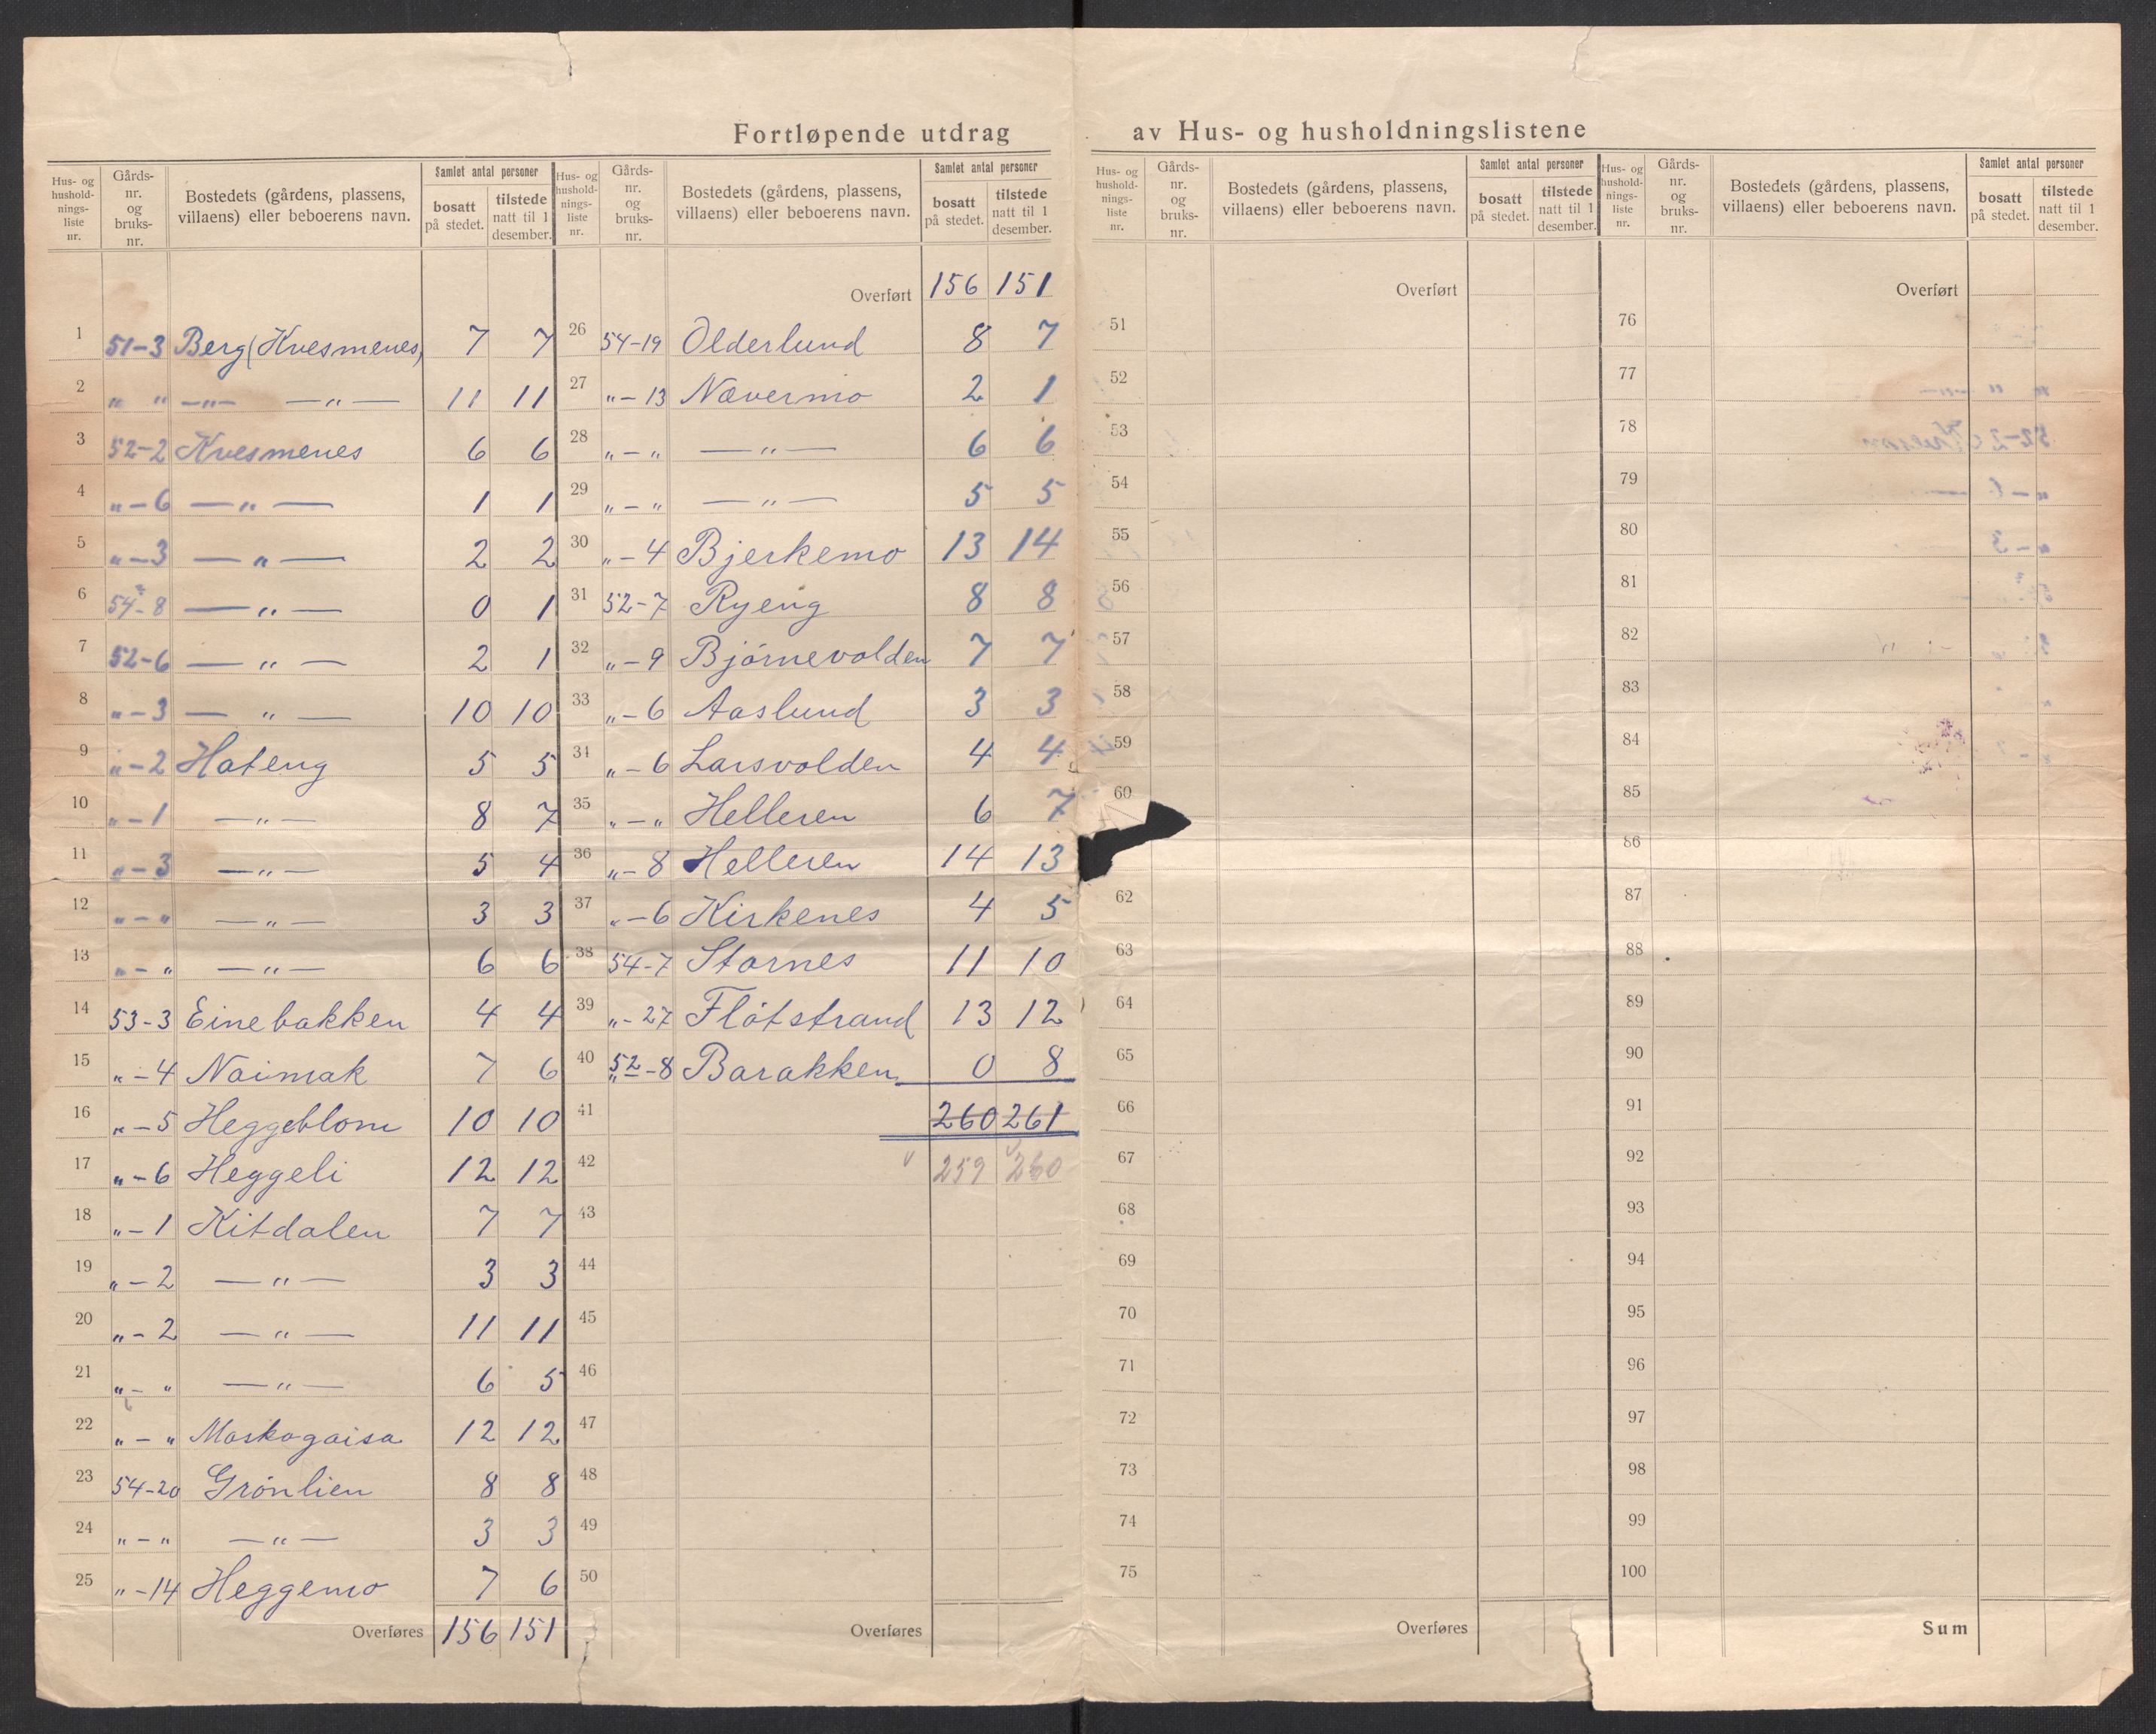 Fortløpende utdrag av Hus- og husholdningslistene
Hus- og hushold- nings- liste nr. | Gårds- nr. og bruks- nr. | Bostedets (gårdens, plassens, villaens) eller beboerens navn. | Samlet antal personer | bosatt på stedet. | tilstede natt til 1 desember.
1 51-3 Berg (Kvesmenes) 7 7
2 " " —"— —"— 11 11
3 52-2 Kvesmenes 6 6
4 "-6 —"— 1 1
5 "-3 —"— 2 2
6 54-8 —"— 0 1
7 52-6 —"— 2 1
8 "-3 —"— 10 10
9 "-2 Hateng 5 5
10 "-1 —"— 8 7
11 "-3 —"— 5 4
12 "-" —"— 3 3
13 "-" —"— 6 6
14 53-3 Einebakken 4 4
15 "-4 Naimak 7 6
16 "-5 Heggeblom 10 10
17 "-6 Heggeli 12 12
18 "-1 Kitdalen 7 7
19 "-2 —"— 3 3
20 "-2 —"— 11 11
21 "-" —"— 6 5
22 "-" Maskogaisa 12 12
23 54-20 Grönlien 8 8
24 "-" —"— 3 3
25 "-14 Heggemo 7 6
Overføres 156 151
Hus- og hushold- nings- liste nr. | Gårds- nr. og bruks- nr. | Bostedets (gårdens, plassens, villaens) eller beboerens navn. | Samlet antal personer | bosatt på stedet. | tilstede natt til 1 desember.
Overført 156 151
26 54-19 Olderlund 8 7
27 "-13 Nævermo 2 1
28 "-" —"— 6 6
29 "-" —"— 5 5
30 "-4 Bjerkemo 13 14
31 52-7 Ryeng 8 8
32 "-9 Björnevolden 7 7
33 "-6 Aaslund 3 3
34 "-6 Larsvolden 4 4
35 "-" Helleren 6 7
36 "-8 Helleren 14 13
37 "-6 Kirkenes 4 5
38 54-7 Stornes 11 10
39 "-27 Flötstrand 13 12
40 52-8 Barakken 0 8
41 260 261
42 259 260
43
44
45
46
47
48
49
50
Overføres
Hus- og hushold- nings- liste nr. | Gårds- nr. og bruks- nr. | Bostedets (gårdens, plassens, villaens) eller beboerens navn. | Samlet antal personer | bosatt på stedet. | tilstede natt til 1 desember.
Overført
51
52
53
54
55
56
57
58
59
60
62
63
64
65
66
67
68
69
70
71
72
73
74
75
Overføres
Hus- og hushold- nings- liste nr. | Gårds- nr. og bruks- nr. | Bostedets (gårdens, plassens, villaens) eller beboerens navn. | Samlet antal personer | bosatt på stedet. | tilstede natt til 1 desember.
Overført
76
77
78
79
80
81
82
83
84
85
86
87
88
89
90
91
92
93
94
95
96
97
98
99
100
Sum